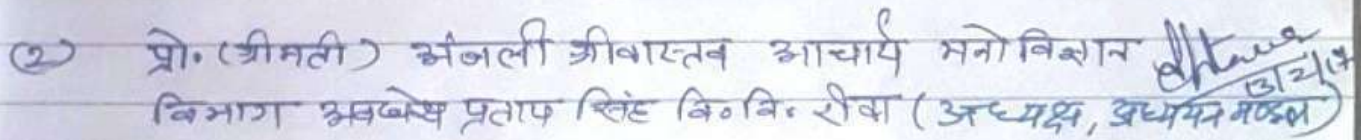 ② प्रो. (श्रीमती) अंजली श्रीवास्तव आचार्य मनोविज्ञान
विभाग अवधेश प्रताप सिंह वि०वि० रीवा (अध्यक्ष, अध्ययन मण्डल)